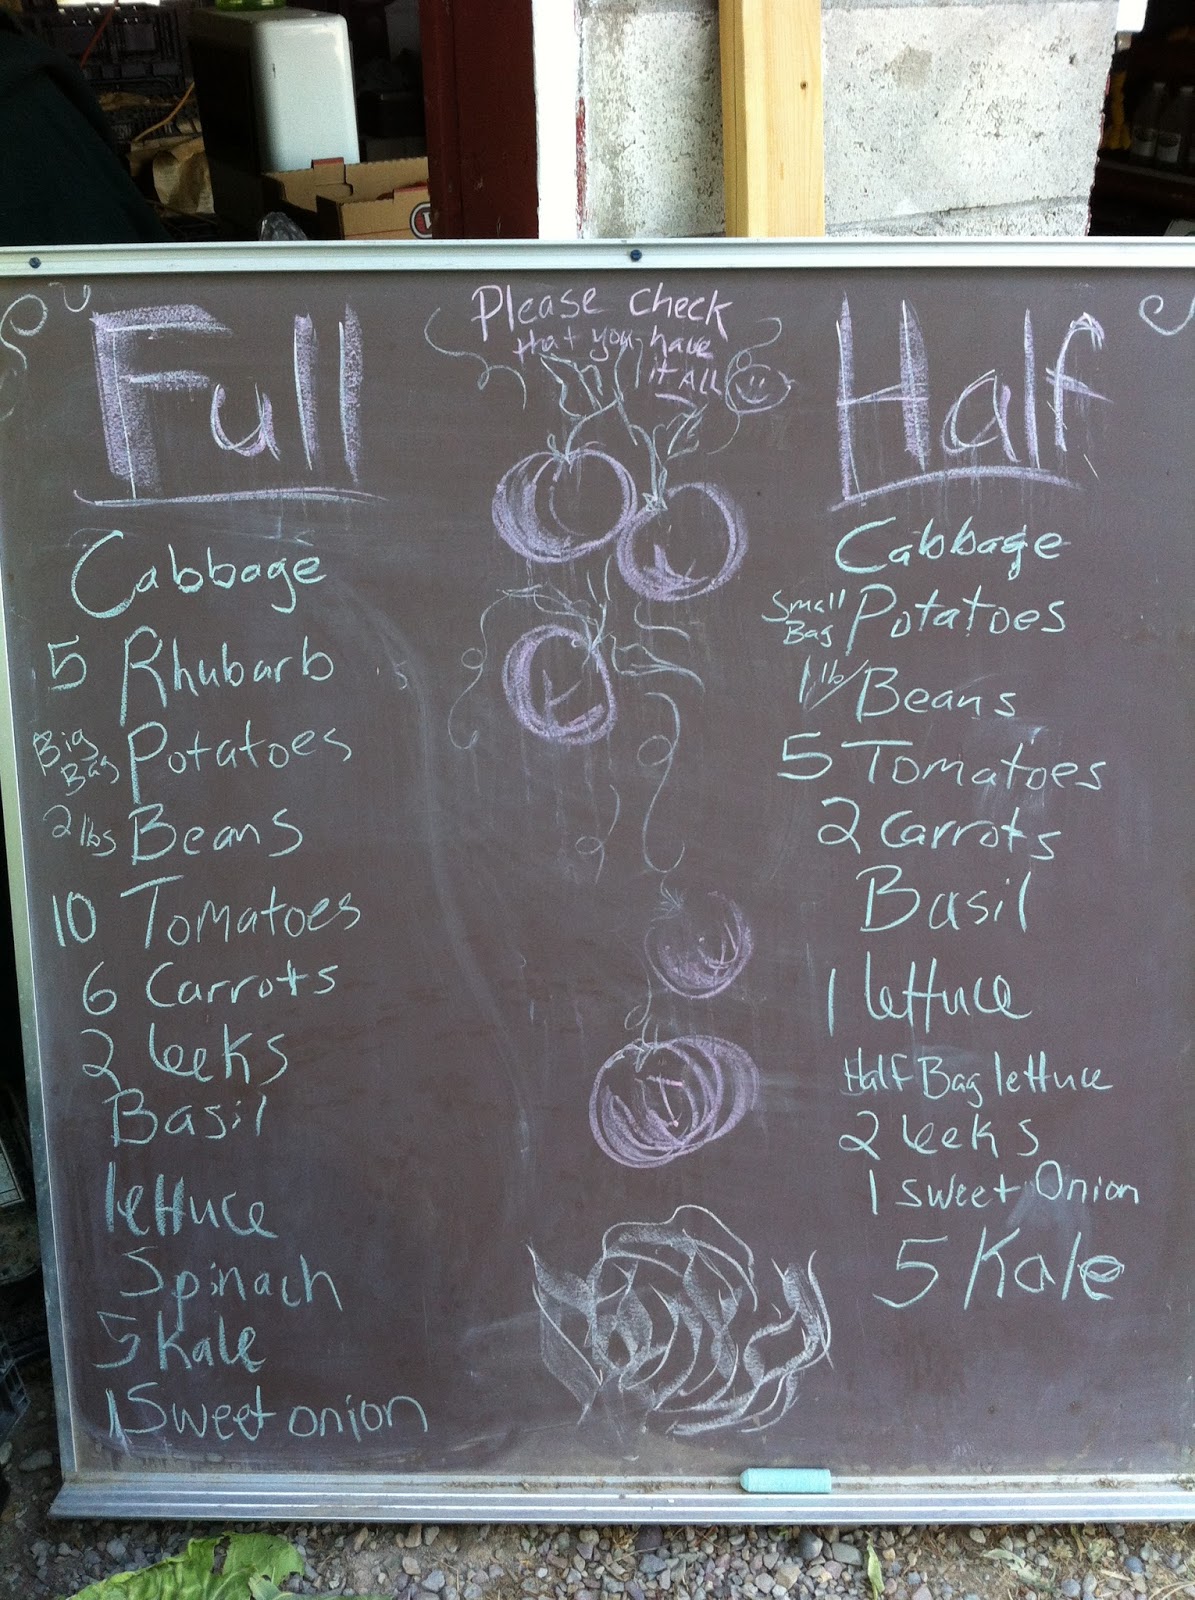 Please check
that you have
it All
Full
Cabbage
5 Rhubarb
Big Bag Potatoes
2 lbs Beans
10 Tomatoes
6 Carrots
2 leeks
Basil
lettuce
Spinach
5 kale
1 Sweet onion
Half
Cabbage
Small Bag Potatoes
1 lb Beans
5 Tomatoes
2 carrots
Basil
1 lettuce
Half Bag lettuce
2 leeks
1 sweet Onion
5 Kale